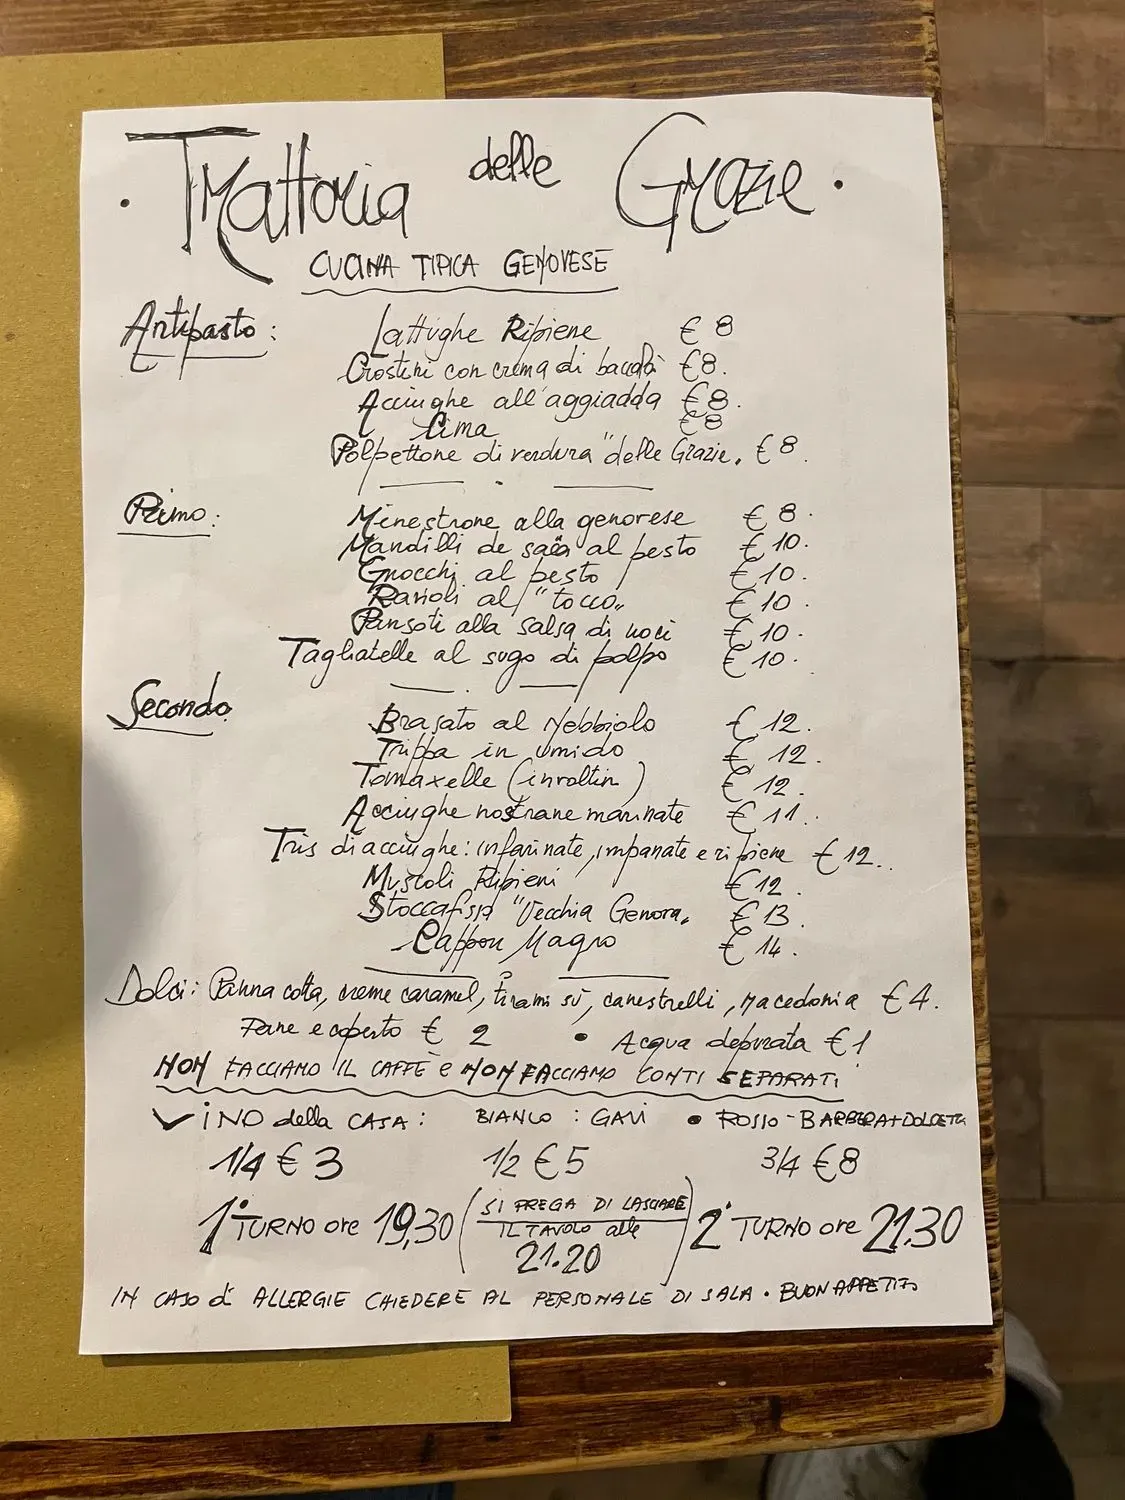 · Trattoria delle Grazie ·
CUCINA TIPICA GENOVESE
Antipasto: Lattughe Ripiene € 8
Crostini con crema di baccalà €8.
Acciughe all'aggiadda €8.
Cima €8
Polpettone di verdura "delle Grazie" €8.
Primo: Minestrone alla genovese € 8.
Mandilli de saea al pesto € 10.
Gnocchi al pesto € 10.
Ravioli al "tocco" € 10.
Pansoti alla salsa di noci € 10.
Tagliatelle al sugo di polpo € 10.
Secondo Brasato al Nebbiolo € 12.
Trippa in umido € 12.
Tomaxelle (involtin) € 12.
Acciughe nostrane marinate € 11.
Tris di acciughe: infarinate, impanate e ripiene € 12.
Muscoli Ripieni € 12.
Stoccafisso "Vecchia Genova" € 13
Cappon Magro € 14.
Dolci: Panna cotta, creme caramel, tirami sù, canestrelli, macedonia € 4.
Pane e coperto € 2 • Acqua depurata € 1
NON FACCIAMO IL CAFFÈ e NON FACCIAMO CONTI SEPARATI
VINO della CASA: BIANCO: GAVI • ROSSO - BARBERA + DOLCETTO
1/4 € 3 1/2 € 5 3/4 € 8
1° TURNO ore 19,30 (SI PREGA DI LASCIARE IL TAVOLO alle 21.20) 2° TURNO ore 21.30
IN CASO di ALLERGIE CHIEDERE AL PERSONALE DI SALA • BUON APPETITO